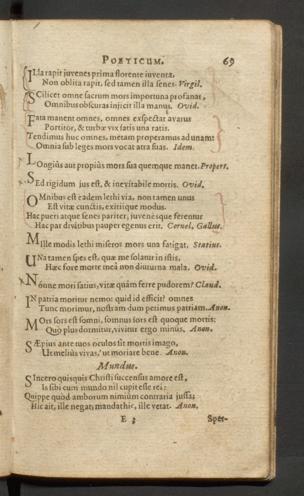 POETICUM. 69
Illa rapit juvenes prima florente juventa.
Non oblita rapit, sed tamen illa senes. Virgil.
Scilicet omne sacrum mors importuna profanat,
Omnibus obscuras injicit illa manus. Ovid.
Fata manent omnes, omnes exspectat avarus
Portitor, & turbæ vix satis una ratis.
Tendimus huc omnes, metam properamus ad unam:
Omnia sub leges mors vocat atra suas. Idem.
Longiùs aut propiùs mors sua quemque manet. Propert.
Sed rigidum jus est, & inevitabile mortis. Ovid.
Omnibus est eadem lethi via, non tamen unus
Est vitæ cunctis, exitiique modus.
Hac pueri atque senes pariter, juvenesque feruntur
Hac par divitibus pauper egenus erit. Cornel, Gallus.
Mille modis lethi miseros mors una fatigat. Statius.
Una tamen spes est, quæ me solatur in istis,
Hæc fore morte meâ non diuturna mala. Ovid.
Nónne mori satius, vitæ quám ferre pudorem? Claud.
In patria moritur nemo: quid id efficit? omnes
Tunc morimur, nostram dum petimus patriam. Anon.
Mors sors est somni, somnus sors est quoque mortis:
Quò plus dormitur, vivitur ergo minùs. Anon.
Sæpius ante tuos oculos sit mortis imago,
Ut melius vivas, ut moriare bene. Anon.
Mundus.
Sincero quisquis Christi succensus amore est,
Is sibi cum mundo nil cupit esse rei:
Quippe quòd amborum nimiùm contraria jussa;
Hic ait, ille negat; mandat hic, ille vetat. Anon.
E 3 Sper-